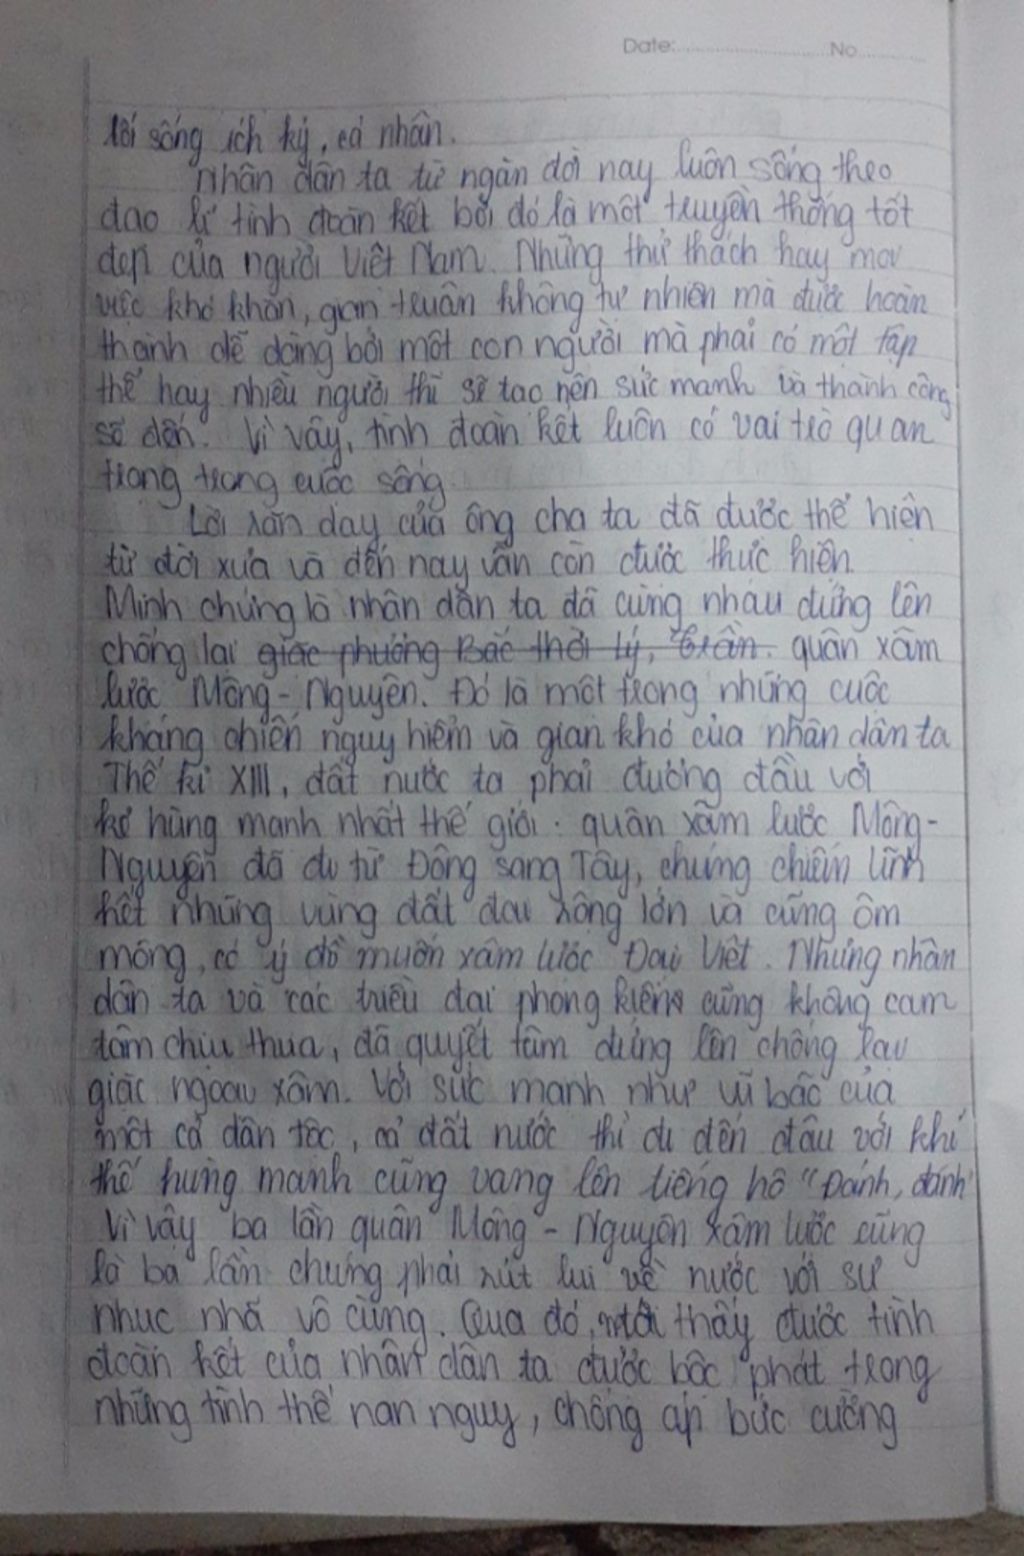 Date: No
lối sống ích kỷ, cá nhân.
Nhân dân ta từ ngàn đời nay luôn sống theo
đạo lí tình đoàn kết bởi đó là một truyền thống tốt
đẹp của người Việt Nam. Những thử thách hay mọi
việc khó khăn, gian truân không tự nhiên mà được hoàn
thành dễ dàng bởi một con người mà phải có một tập
thể hay nhiều người thì sẽ tạo nên sức mạnh và thành công
sẽ đến. Vì vậy, tình đoàn kết luôn có vai trò quan
trọng trong cuộc sống
Lời răn dạy của ông cha ta đã được thể hiện
từ đời xưa và đến nay vẫn còn được thực hiện.
Minh chứng là nhân dân ta đã cùng nhau đứng lên
chống lại giặc phương Bắc thời Lý, Trần. quân xâm
lược Mông - Nguyên. Đó là một trong những cuộc
kháng chiến nguy hiểm và gian khó của nhân dân ta
Thế kỉ XIII, đất nước ta phải đương đầu với
kẻ hùng mạnh nhất thế giới: quân xâm lược Mông-
Nguyên đã đi từ Đông sang Tây, chúng chiếm lĩnh
hết những vùng đất đai rộng lớn và cũng ôm
mộng, có ý đồ muốn xâm lược Đại Việt. Nhưng nhân
dân ta và các triều đại phong kiến cũng không cam
tâm chịu thua, đã quyết tâm đứng lên chống lại
giặc ngoại xâm. Với sức mạnh như vũ bão của
một cả dân tộc, cả đất nước thì đi đến đâu với khí
thế hùng mạnh cũng vang lên tiếng hô "Đánh, đánh"
Vì vậy ba lần quân Mông - Nguyên xâm lược cũng
là ba lần chúng phải rút lui về nước với sự
nhục nhã vô cùng. Qua đó, mới thấy được tình
đoàn kết của nhân dân ta được bộc phát trong
những tình thế nan nguy, chống áp bức cường